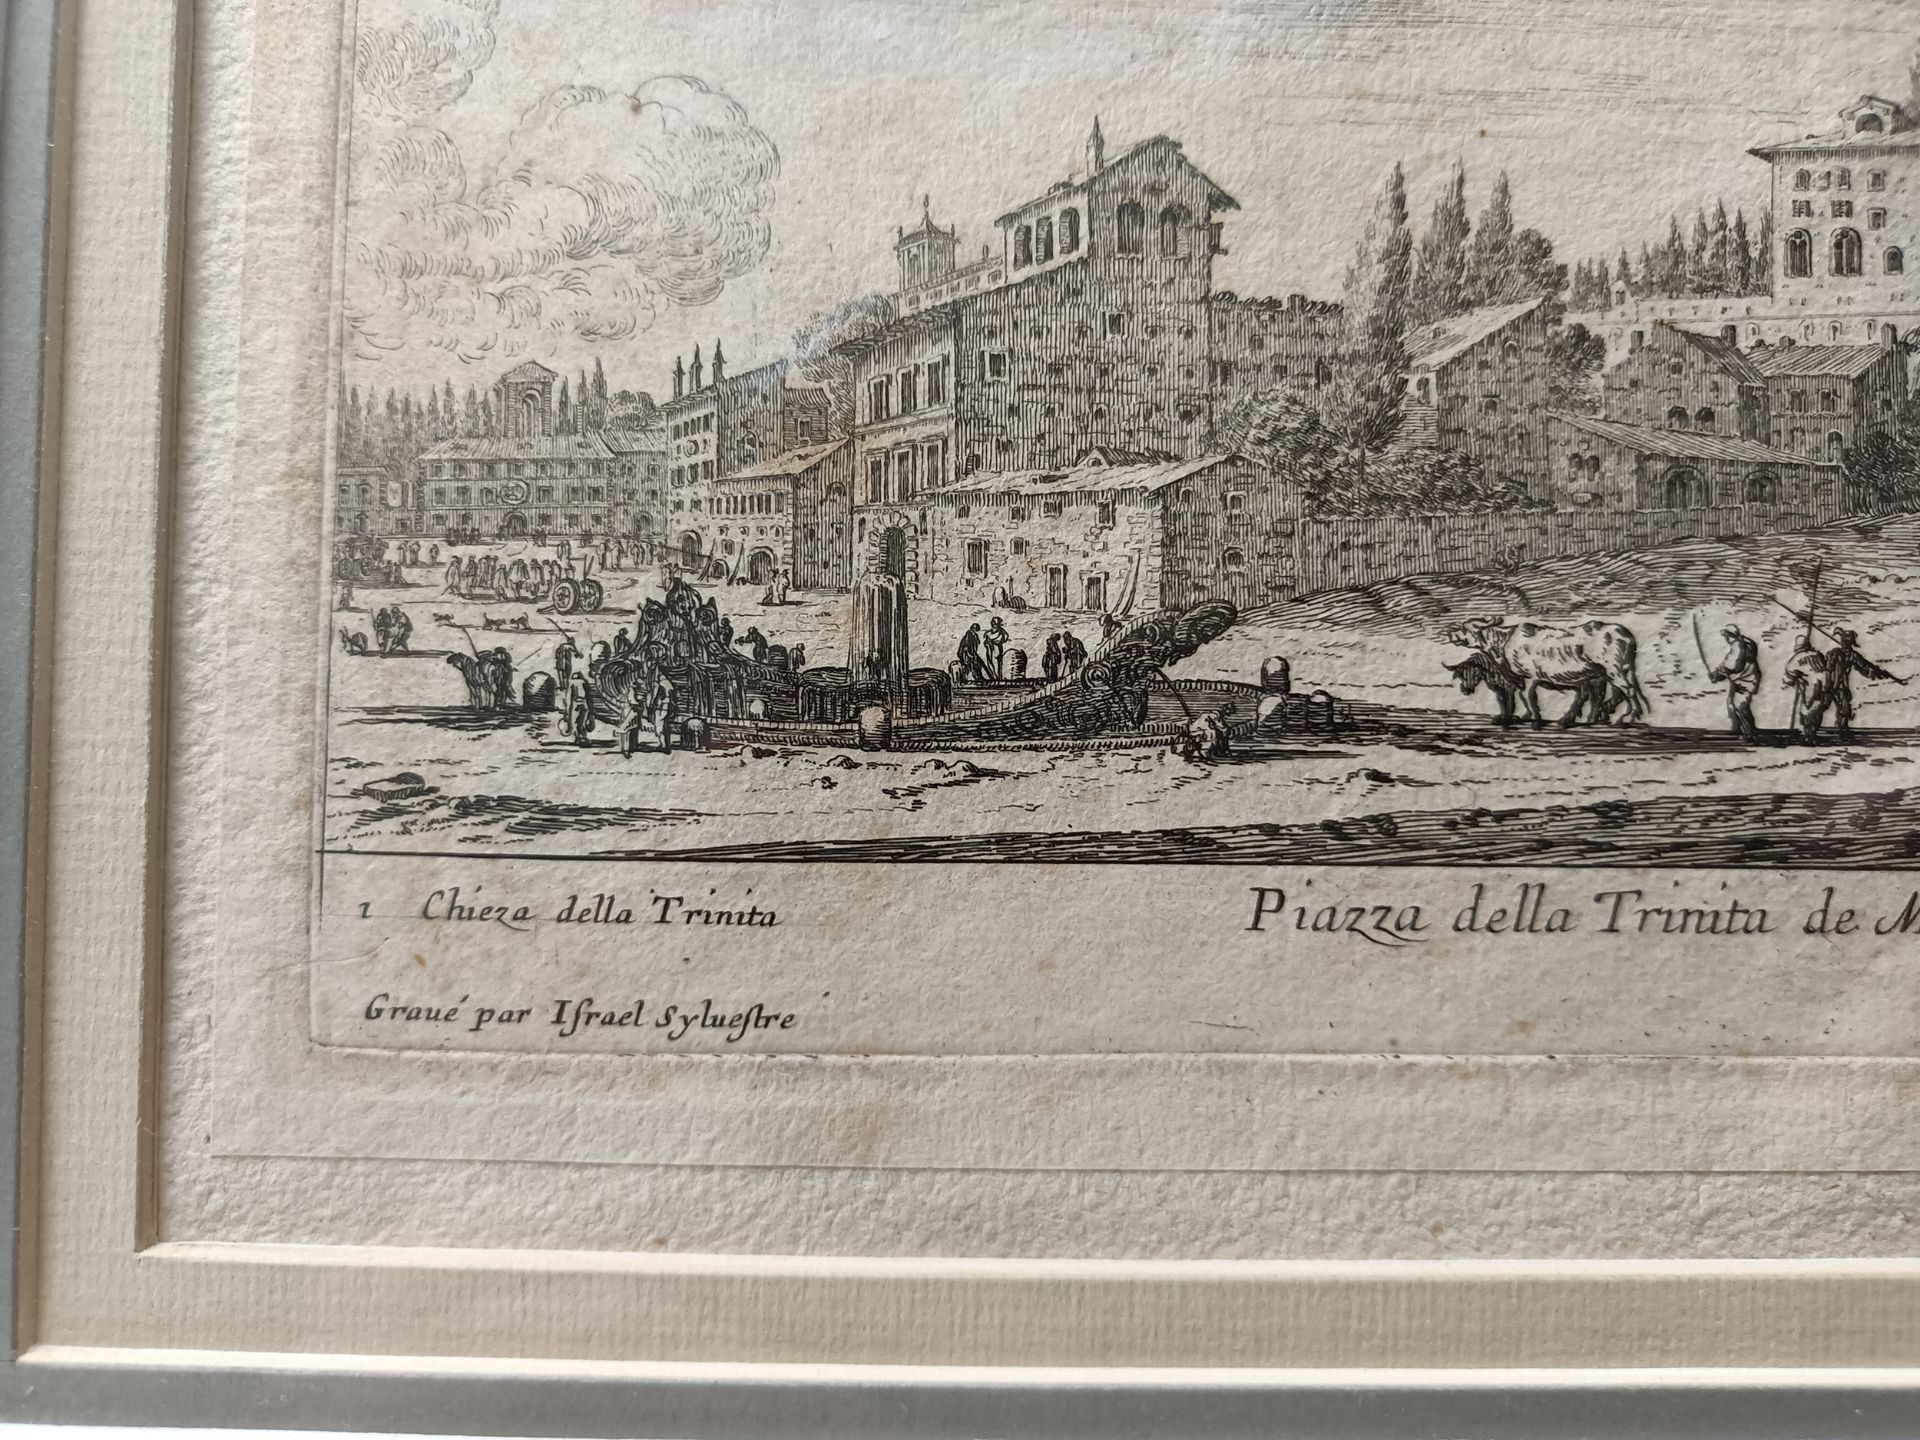 1 Chieza della Trinita
Piazza della Trinita de M
Graué par Iſrael Sylueſtre